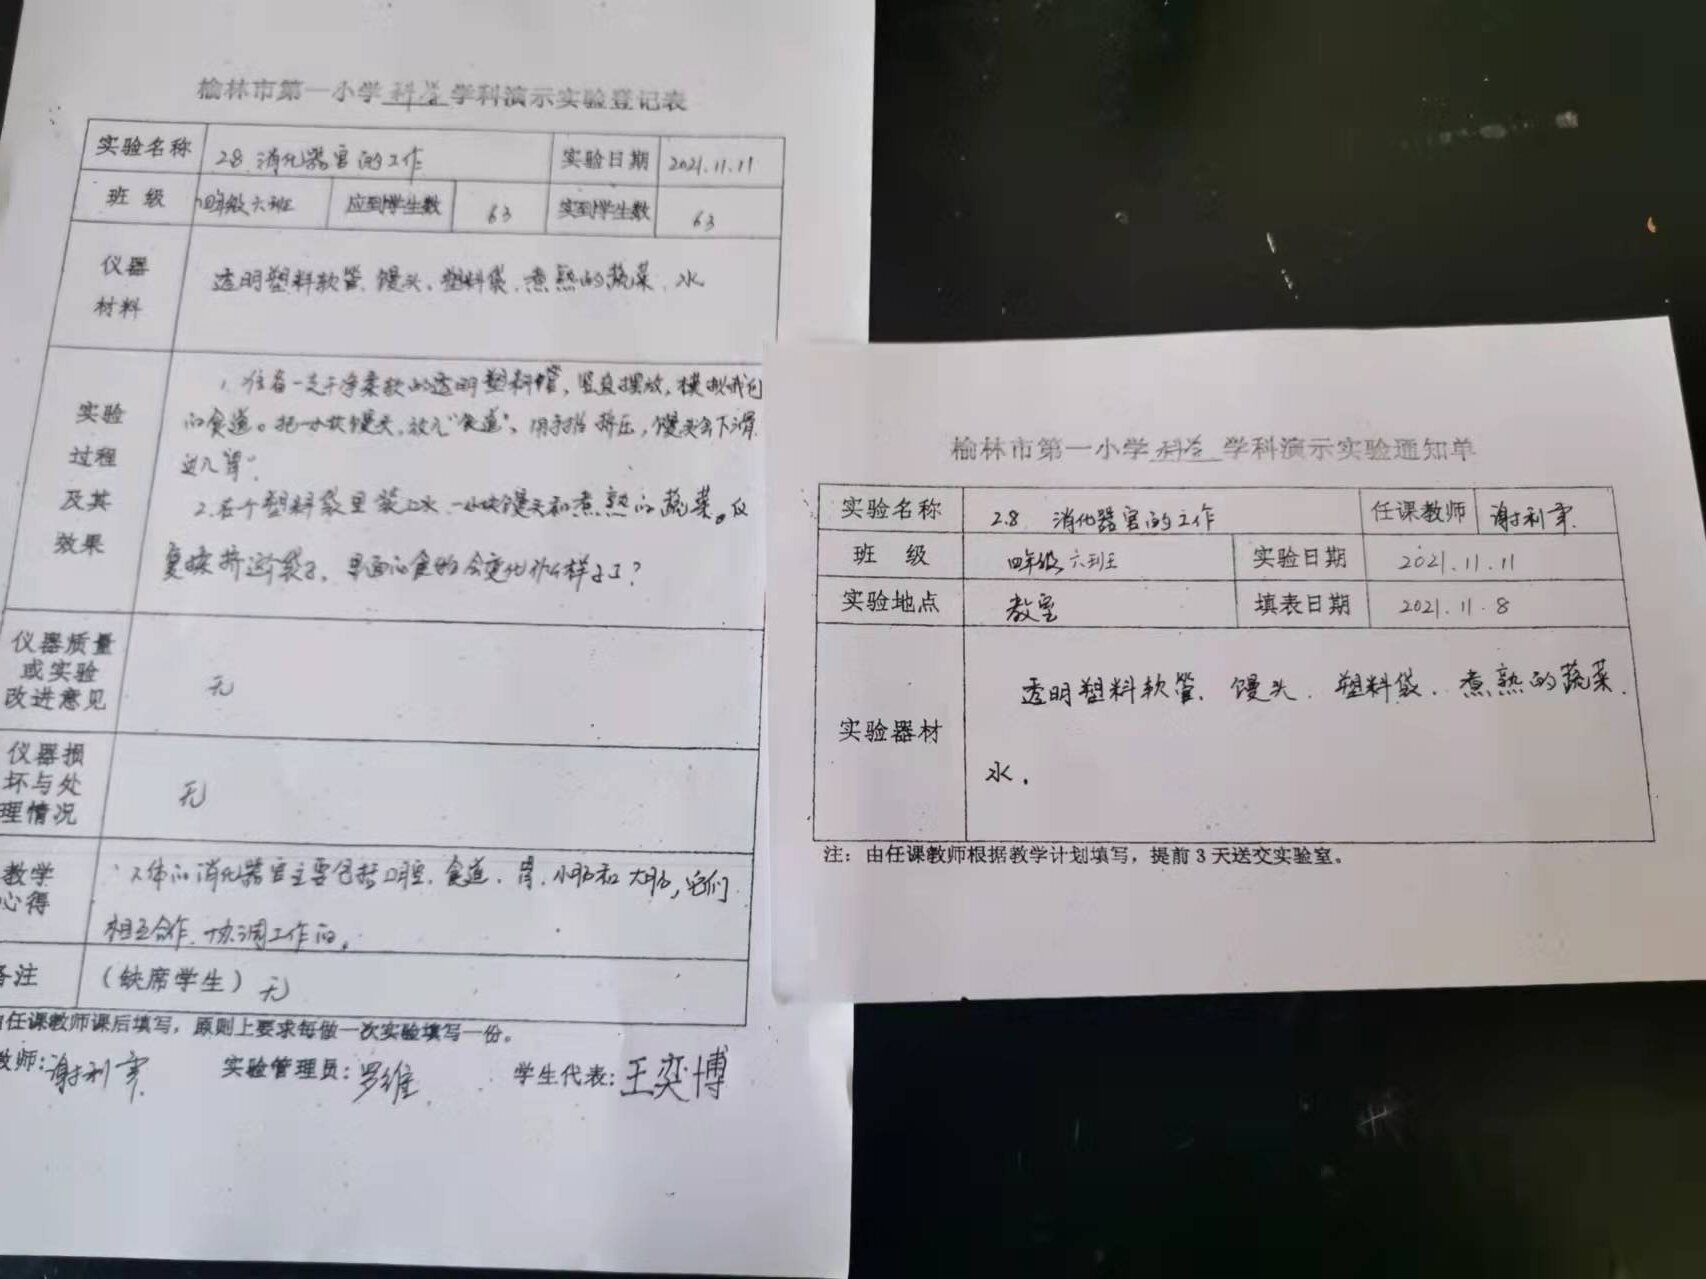 榆林市第一小学科学学科演示实验登记表
实验名称 2.8 消化器官的工作 实验日期 2021.11.11
班 级 四年级六班 应到学生数 63 实到学生数 63
仪器
材料
透明塑料软管、馒头、塑料袋、煮熟的蔬菜、水
实验
过程
及其
效果
1、准备一支干净柔软的透明塑料管，竖直摆放，模拟我们
的食道。把一小块馒头，放入"食道"，用手指挤压，馒头会下滑
进入"胃"。
2、在个塑料袋里装上水、一小块馒头和煮熟的蔬菜。反
复揉挤这个袋子，里面的食物会变化什么样子了？
仪器质量
或实验
改进意见
无
仪器损
坏与处
理情况
无
教学
心得
人体的消化器官主要包括口腔、食道、胃、小肠和大肠，它们
相互合作、协调工作的。
备注 （缺席学生）无
由任课教师课后填写，原则上要求每做一次实验填写一份。
教师：谢利 实验管理员：罗维 学生代表：王奕博
榆林市第一小学科学学科演示实验通知单
实验名称 2.8 消化器官的工作 任课教师 谢利
班 级 四年级六班 实验日期 2021.11.11
实验地点 教室 填表日期 2021.11.8
实验器材
透明塑料软管、馒头、塑料袋、煮熟的蔬菜、
水。
注：由任课教师根据教学计划填写，提前3天送交实验室。